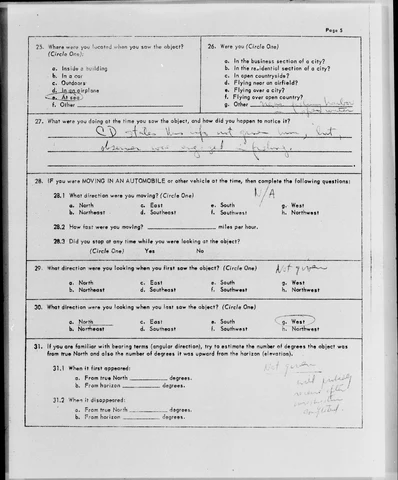 Page 5
25. Where were you located when you saw the object?
(Circle One):
a. Inside a building
b. In a car
c. Outdoors
d. In an airplane
e. At sea
f. Other
26. Were you (Circle One)
a. In the business section of a city?
b. In the residential section of a city?
c. In open countryside?
d. Flying near an airfield?
e. Flying over a city?
f. Flying over open country?
g. Other
27. What were you doing at the time you saw the object, and how did you happen to notice it?
CD states this info not given him, but,
observer was engaged in fishing.
28. IF you were MOVING IN AN AUTOMOBILE or other vehicle at the time, then complete the following questions:
28.1 What direction were you moving? (Circle One) N/A
a. North c. East e. South g. West
b. Northeast d. Southeast f. Southwest h. Northwest
28.2 How fast were you moving? miles per hour.
28.3 Did you stop at any time while you were looking at the object?
(Circle One) Yes No
29. What direction were you looking when you first saw the object? (Circle One) Not given
a. North c. East e. South g. West
b. Northeast d. Southeast f. Southwest h. Northwest
30. What direction were you looking when you last saw the object? (Circle One)
a. North c. East e. South g. West
b. Northeast d. Southeast f. Southwest h. Northwest
31. If you are familiar with bearing terms (angular direction), try to estimate the number of degrees the object was
from true North and also the number of degrees it was upward from the horizon (elevation).
31.1 When it first appeared: Not given
a. From true North degrees.
b. From horizon degrees.
31.2 When it disappeared:
a. From true North degrees.
b. From horizon degrees.